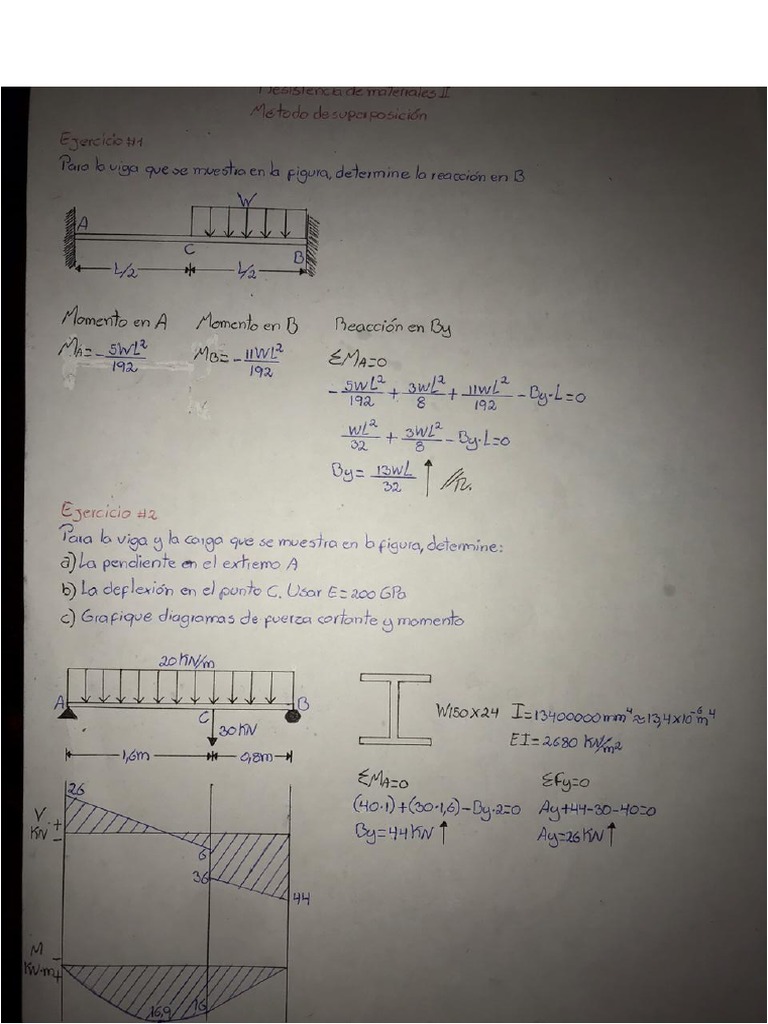 Resistencia de materiales II
Método de superposición
Ejercicio #1
Para la viga que se muestra en la figura, determine la reacción en B
W
A
C
B
L/2
L/2
Momento en A
MA=-5WL²/192
Momento en B
MB=-11WL²/192
Reacción en By
ΣMA=0
-5WL²/192+3WL²/8+11WL²/192-By·L=0
WL²/32+3WL²/8-By·L=0
By=13WL/32↑
Ejercicio #2
Para la viga y la carga que se muestra en la figura, determine:
a) La pendiente en el extremo A
b) La deflexión en el punto C. Usar E=200 GPa
c) Grafique diagramas de fuerza cortante y momento
20KN/m
A
C
B
30KN
1,6m
0,8m
W150X24
I=13400000mm⁴≈13,4x10⁻⁶m⁴
EI=2680 KN/m2
ΣMA=0
(40·1)+(30·1,6)-By·2=0
By=44KN↑
ΣFy=0
Ay+44-30-40=0
Ay=26KN↑
V
KN
+
-
26
6
36
44
M
KN·m
-
+
16,9
16